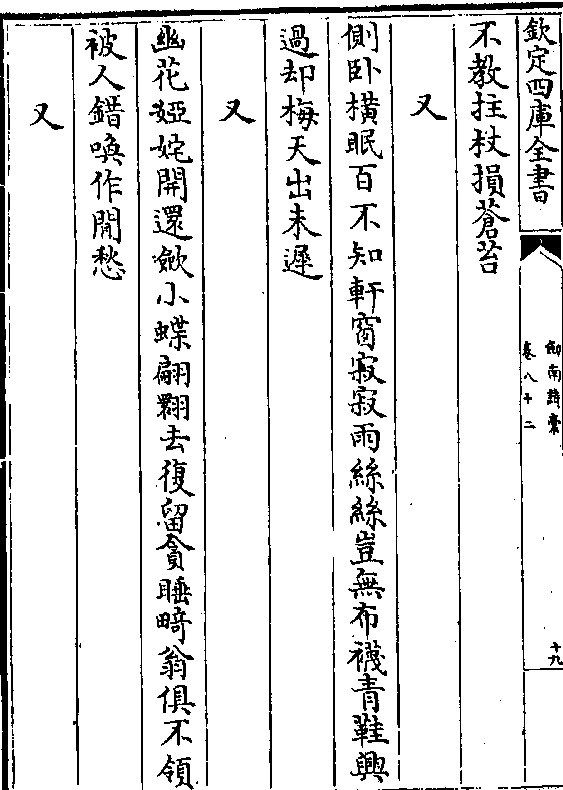 欽定四庫全書
劍南詩稾
卷八十二
十九
不教拄杖損蒼苔
又
側卧橫眠百不知軒窗寂寂雨絲絲豈無布襪青鞵興
過却梅天出未遲
又
幽花婭姹開還斂小蝶翩翾去復留貪睡畸翁俱不領
被人錯喚作閒愁
又